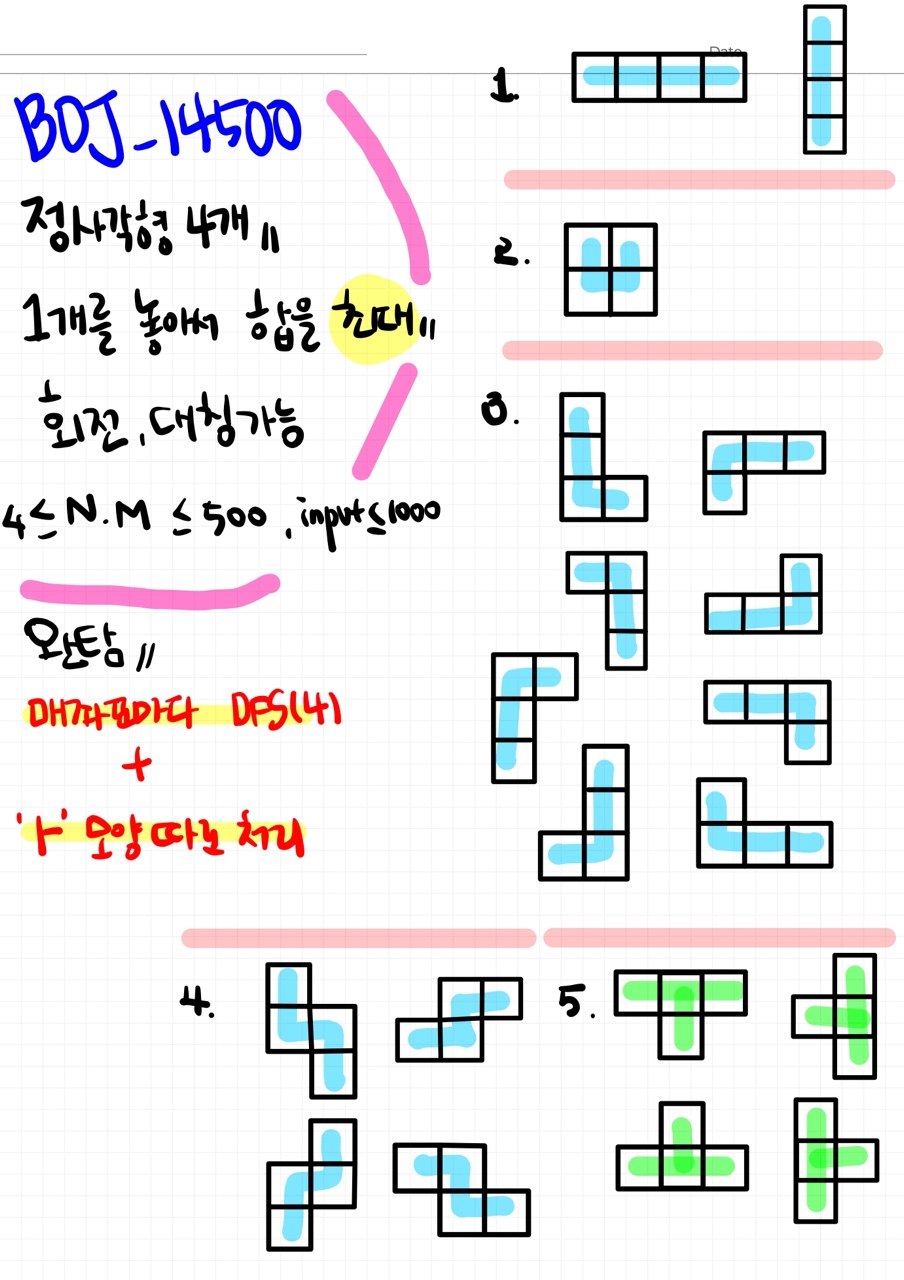 Date
BOJ-14500
정사각형 4개 〃
1개를 놓아서 합을 최대 〃
회전, 대칭가능
4 ≤ N.M ≤ 500 , input ≤ 1000
완탐 〃
매좌표마다 DFS(4)
+
'ㅏ' 모양 따로 처리
1.
2.
3.
4.
5.